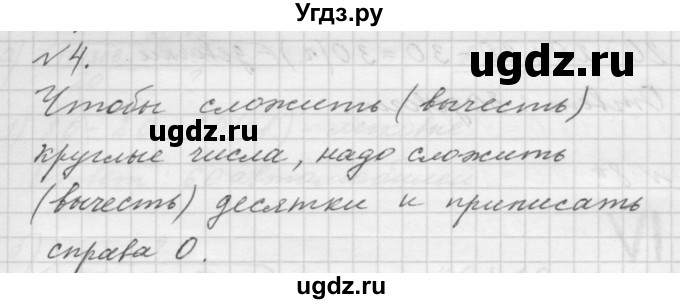 Угдз.ру
№4.
ugdz.ru
Чтобы сложить (вычесть)
ugdz.ru
круглые числа, надо сложить
(вычесть) десятки и приписать
справа 0.
ugdz.ru
ugdz.ru